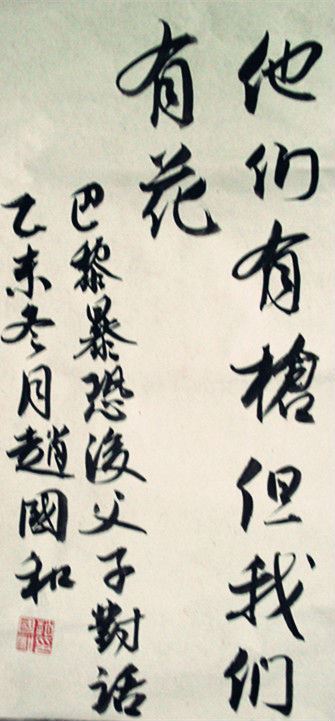 他们有槍但我们
有花
巴黎暴恐後父子對話
乙未冬月趙國和